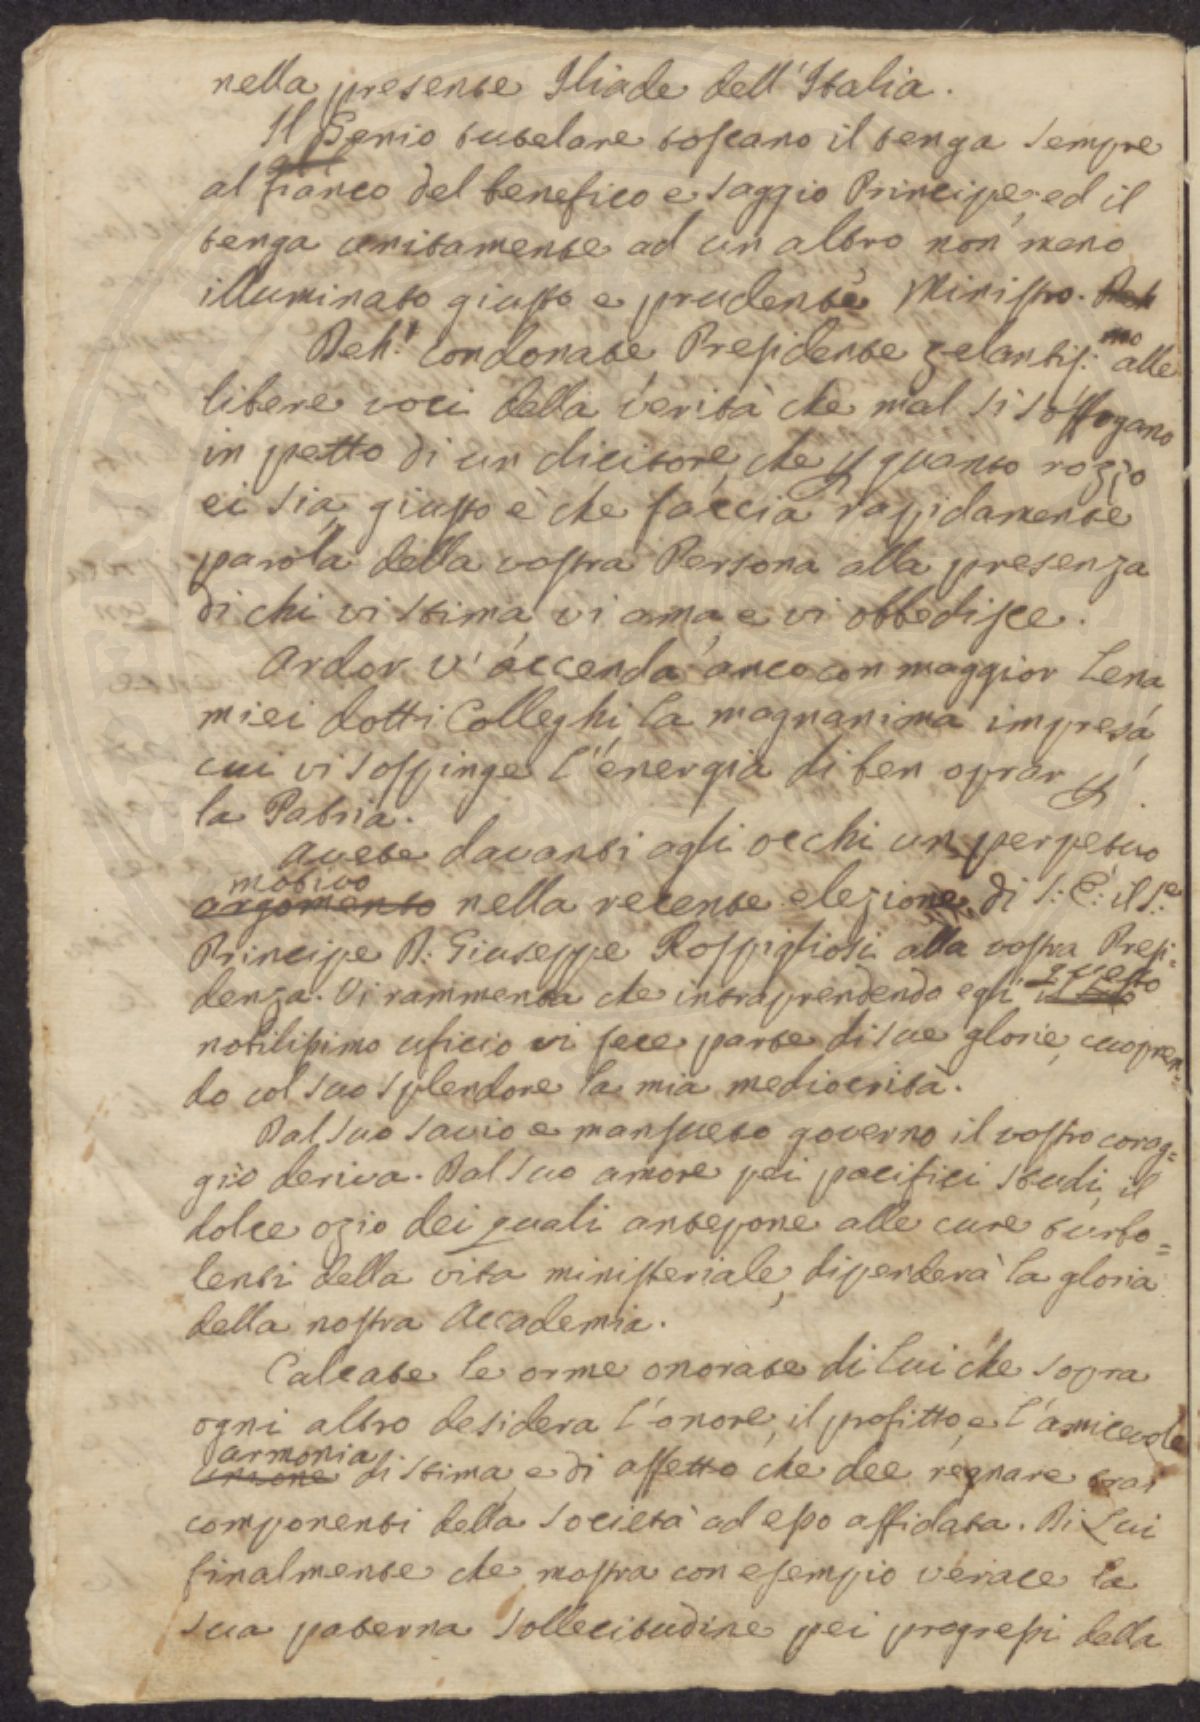 nella presente Iliade dell'Italia.
Il Genio tutelare toscano il tenga sempre
al fianco del benefico e saggio Principe, ed il
tenga unitamente ad un altro non meno
illuminato giusto e prudente Ministro. Deh
Deh! condonate, Presidente zelantis:mo alle
libere voci della verità che mal si soffogano
in petto di un dicitore, che p quanto rozzo
ei sia, giusto è che faccia rapidamente
parola della vostra Persona alla presenza
di chi vi stima, vi ama, e vi obbedisce.
Ardor v'accenda anco con maggior lena,
miei dotti Colleghi, la magnanima impresa,
cui vi sospinge l'energia di ben oprar p
la Patria.
Avete davanti agli occhi un perpetuo
motivo
argomento nella recente elezione di S: E: il S:e
Principe D: Giuseppe Rospigliosi alla vostra Presi-
denza. Vi rammenta che intraprendendo egli questo
nobilissimo uficio vi fece parte di sue glorie, cuopren=
do col suo splendore la mia mediocrità.
Dal suo savio e mansueto governo il vostro corag=
gio deriva. Dal suo amore pei pacifici studi, il
dolce ozio dei quali antepone alle cure turbo=
lenti della vita ministeriale, dipenderà la gloria
della nostra Accademia.
Calcate le orme onorate di lui che sopra
ogni altro desidera l'onore, il profitto, e l'amicevole
armonia
unione di stima, e di affetto che dee regnare trai
componenti della Società ad esso affidata. Di Lui
finalmente che mostra con esempio verace la
sua paterna sollecitudine pei progressi della